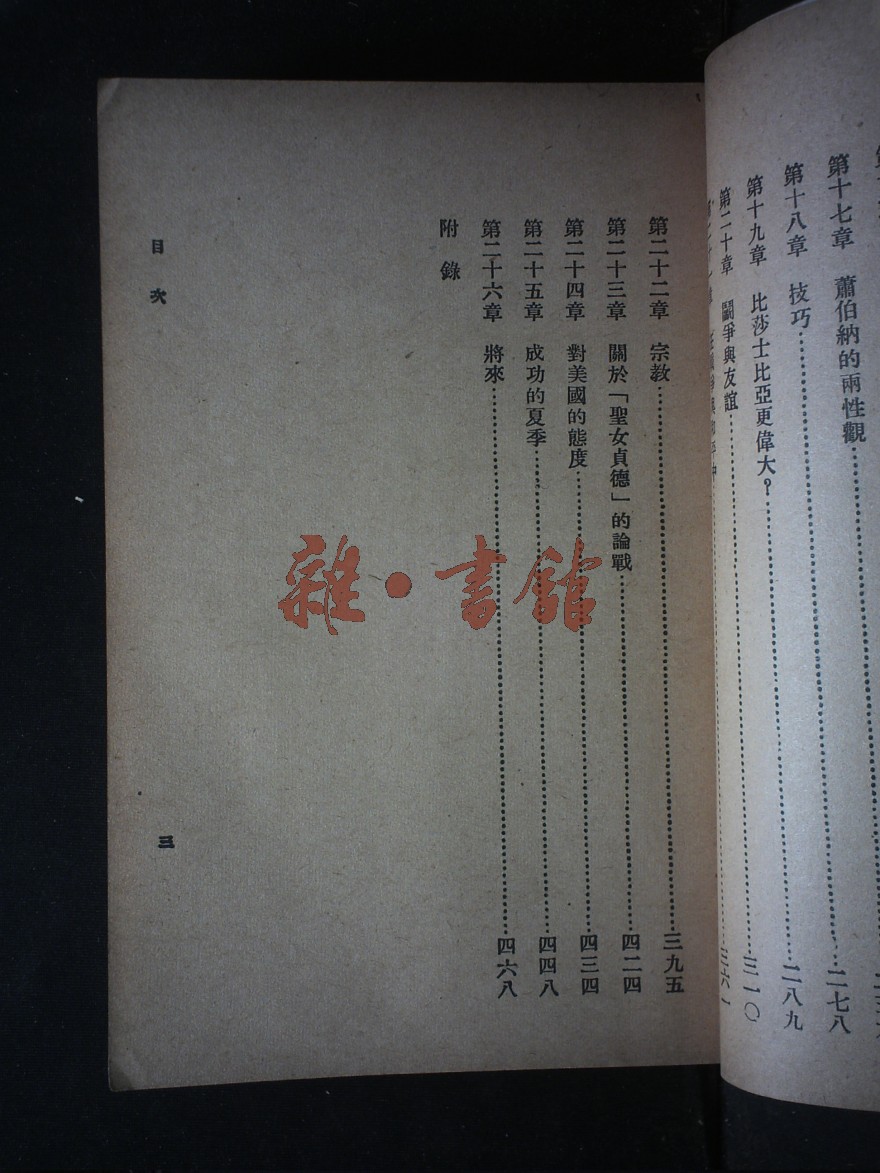 第十七章 蕭伯納的兩性觀……二七八
第十八章 技巧……二八九
第十九章 比莎士比亞更偉大？……三一〇
第二十章 鬭爭與友誼……三六一
第二十二章 宗教……三九五
第二十三章 關於「聖女貞德」的論戰……四二四
第二十四章 對美國的態度……四三四
第二十五章 成功的夏季……四四八
第二十六章 將來……四六八
附錄
目次
三
雜·書館